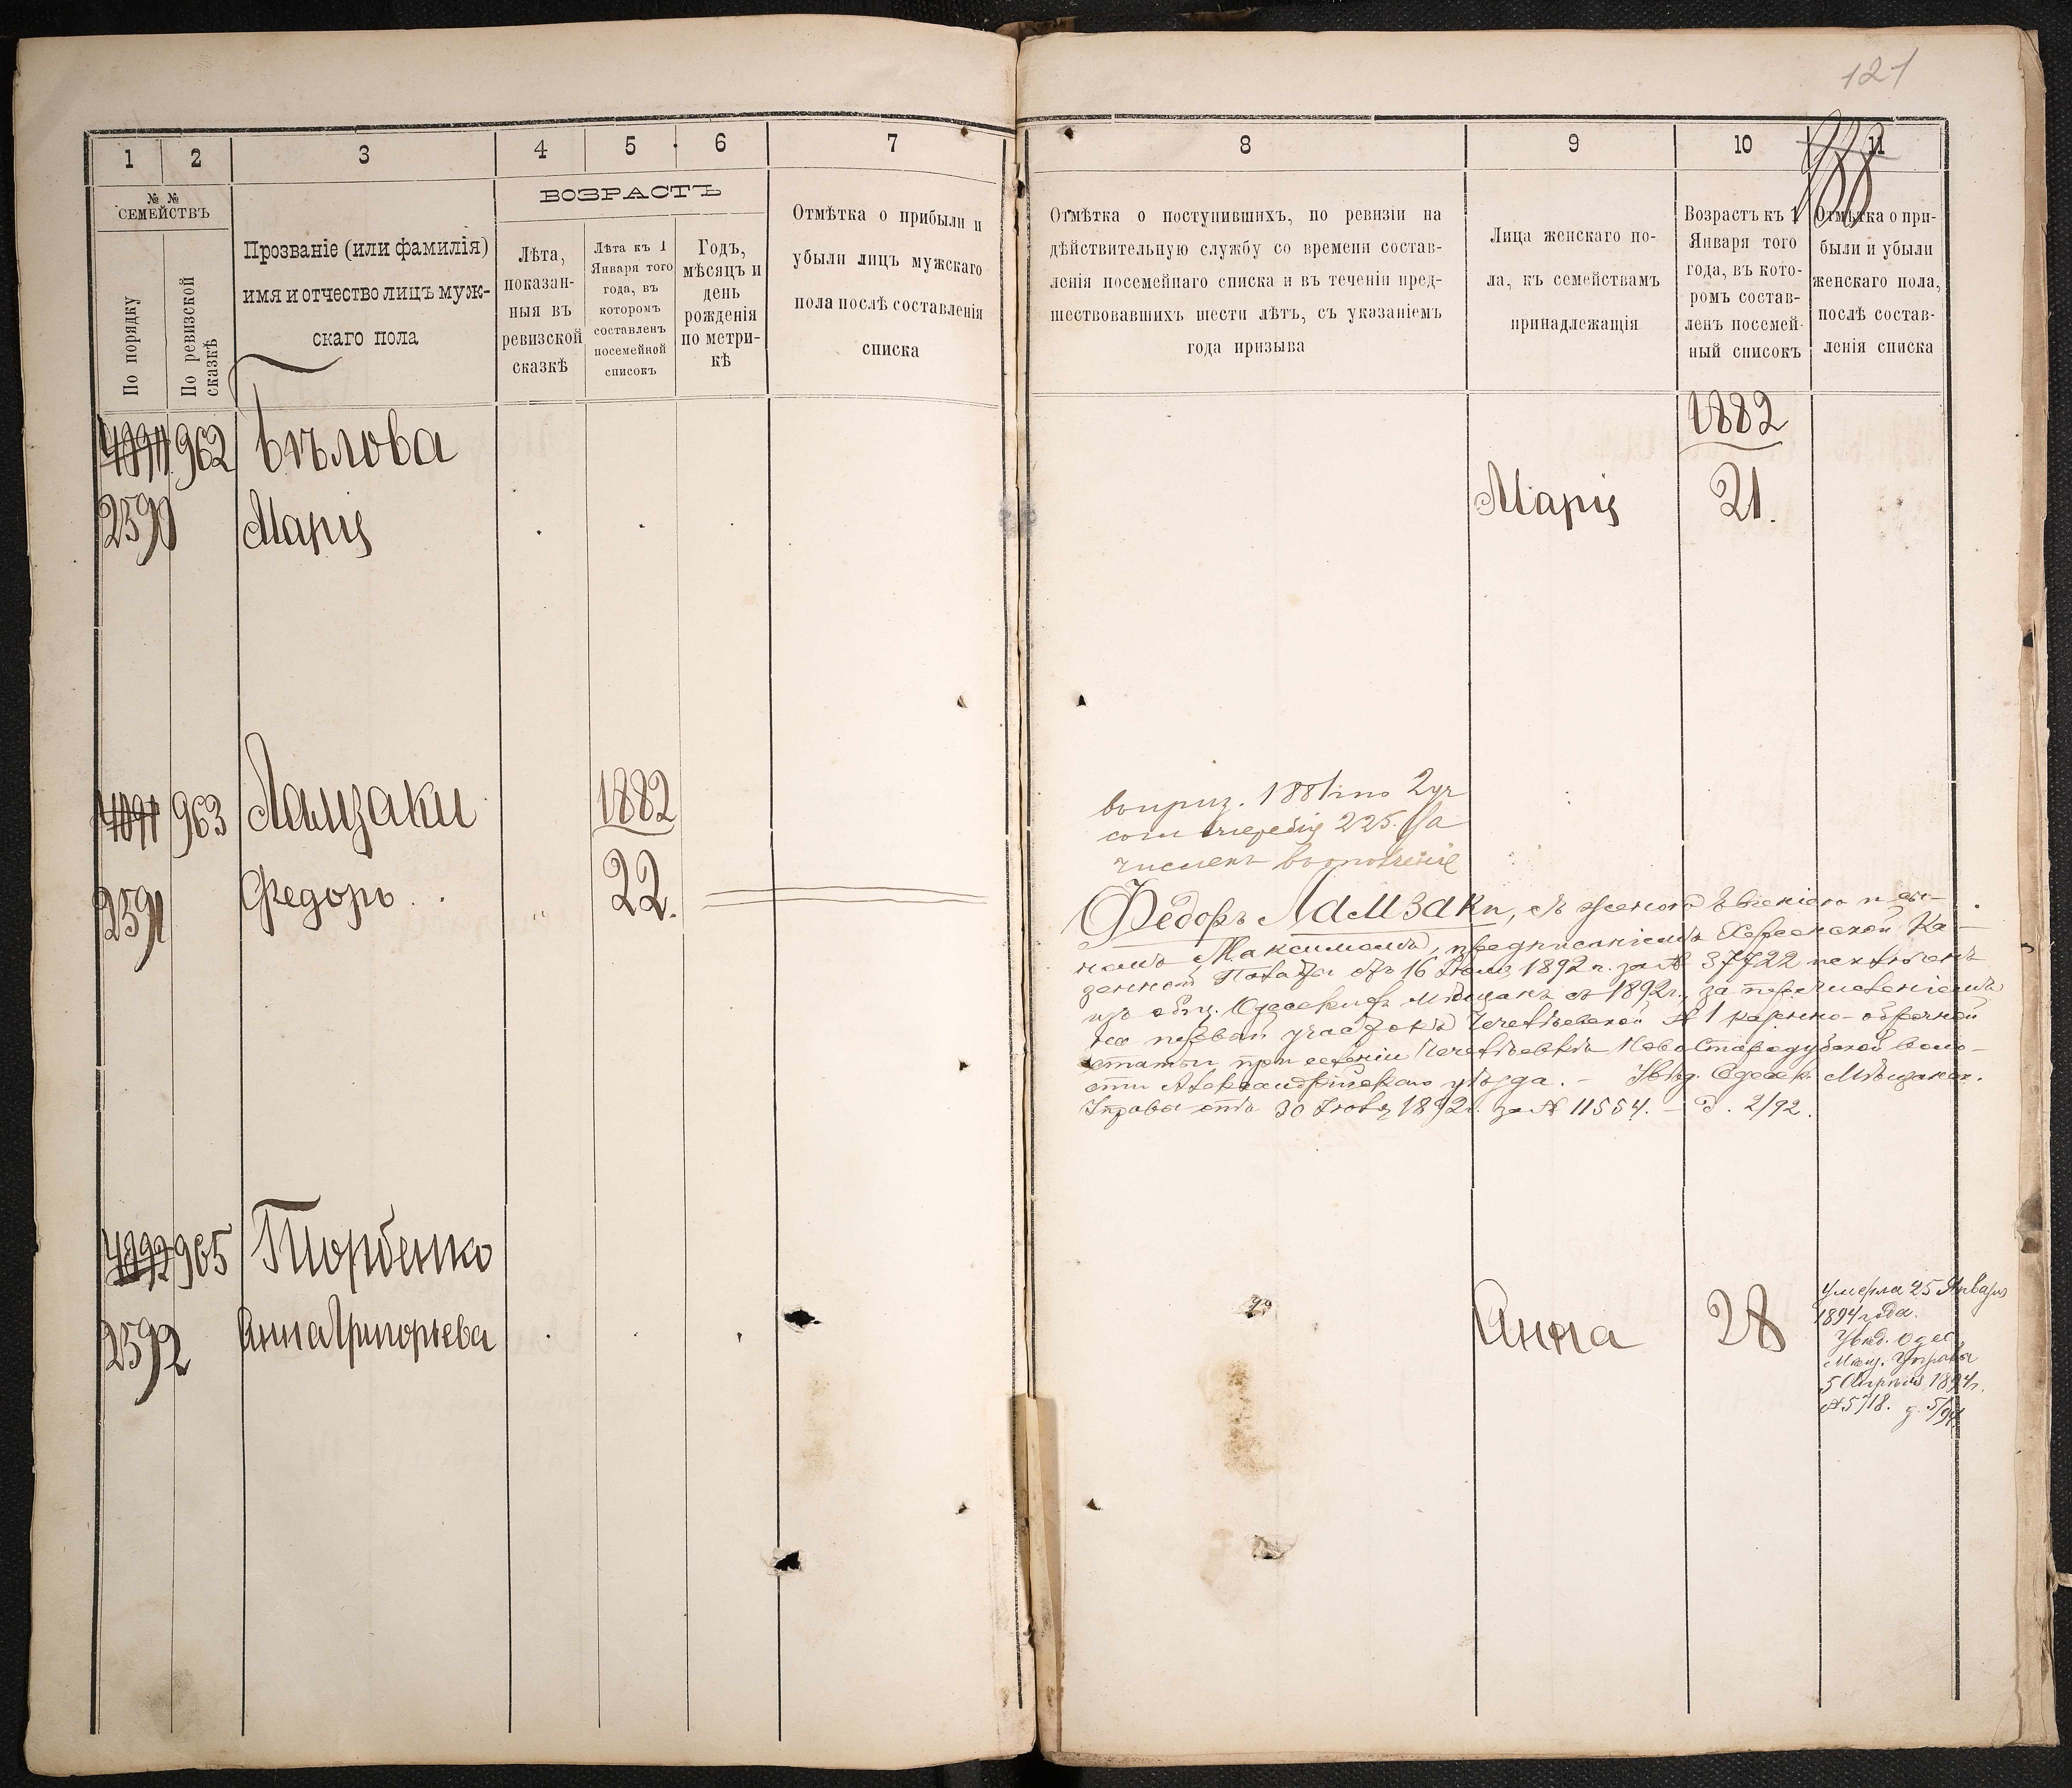 121
188
1 2 3 4 5 6 7 8 9 10 11
№ №
СЕМЕЙСТВЪ
По порядку
По ревизской сказкѣ
Прозваніе (или фамилія)
имя и отчество лицъ муж-
скаго пола
ВОЗРАСТЪ
Лѣта,
показан-
ныя въ
ревизской
сказкѣ
Лѣта къ 1
Января того
года, въ
которомъ
составленъ
посемейной
списокъ
Годъ,
мѣсяцъ и
день
рожденія
по метри-
кѣ
Отмѣтка о прибыли и
убыли лицъ мужскаго
пола послѣ составленія
списка
Отмѣтка о поступившихъ, по ревизіи на
дѣйствительную службу со времени состав-
ленія посемейнаго списка и въ теченіи пред-
шествовавшихъ шести лѣтъ, съ указаніемъ
года призыва
Лица женскаго по-
ла, къ семействамъ
принадлежащія
Возрастъ къ 1
Января того
года, въ кото-
ромъ состав-
ленъ посемей-
ный списокъ
Отмѣтка о при-
были и убыли
женскаго пола,
послѣ состав-
ленія списка
962 Бѣлова 1882
2590 Марія Марія 21.
963 Ламзаки 1882
2591 Федоръ 22.
въ приз. 1881 по 2 уч
225. За
численъ въ ополченіе
Федоръ Ламзаки, съ женою Евгеніею и сы-
номъ Максимомъ, предписаніемъ Херсонской Ка-
зенной Палаты отъ 16 1892 г. за № 37722 исключенъ
изъ общ. Одесскихъ мѣщанъ съ 1892 г., за перечисленіемъ
на первый участокъ № 1 казенно-оброчной
статьи при селеніи Ново Стародубской воло-
сти Александрійскаго уѣзда. — Увѣд. Одесск. Мѣщанск.
Управы отъ 30 1892 г. за № 11554. — Д. 2/92.
4092 965 Торбенко
2592 Анна Григорьева Анна 28
Умерла 25 Января
1894 года.
Увѣд. Одес.
Мѣщ. Управы
5 Апрѣля 1894 г.
№ 5718. д. 5/94